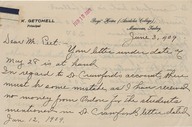 GETCHELL
Boys' Home (Anatolia College)
Marsovan, Turkey
June 3, 1909.
Dear Mr. Peet:
Your letter under date of
May 28 is at hand.
In regard to Dr Crawford's account, there
must be some mistake as I have received
no money from Ordou for the students
mentioned in Dr Crawford's letter dated
Jan. 12, 1909.